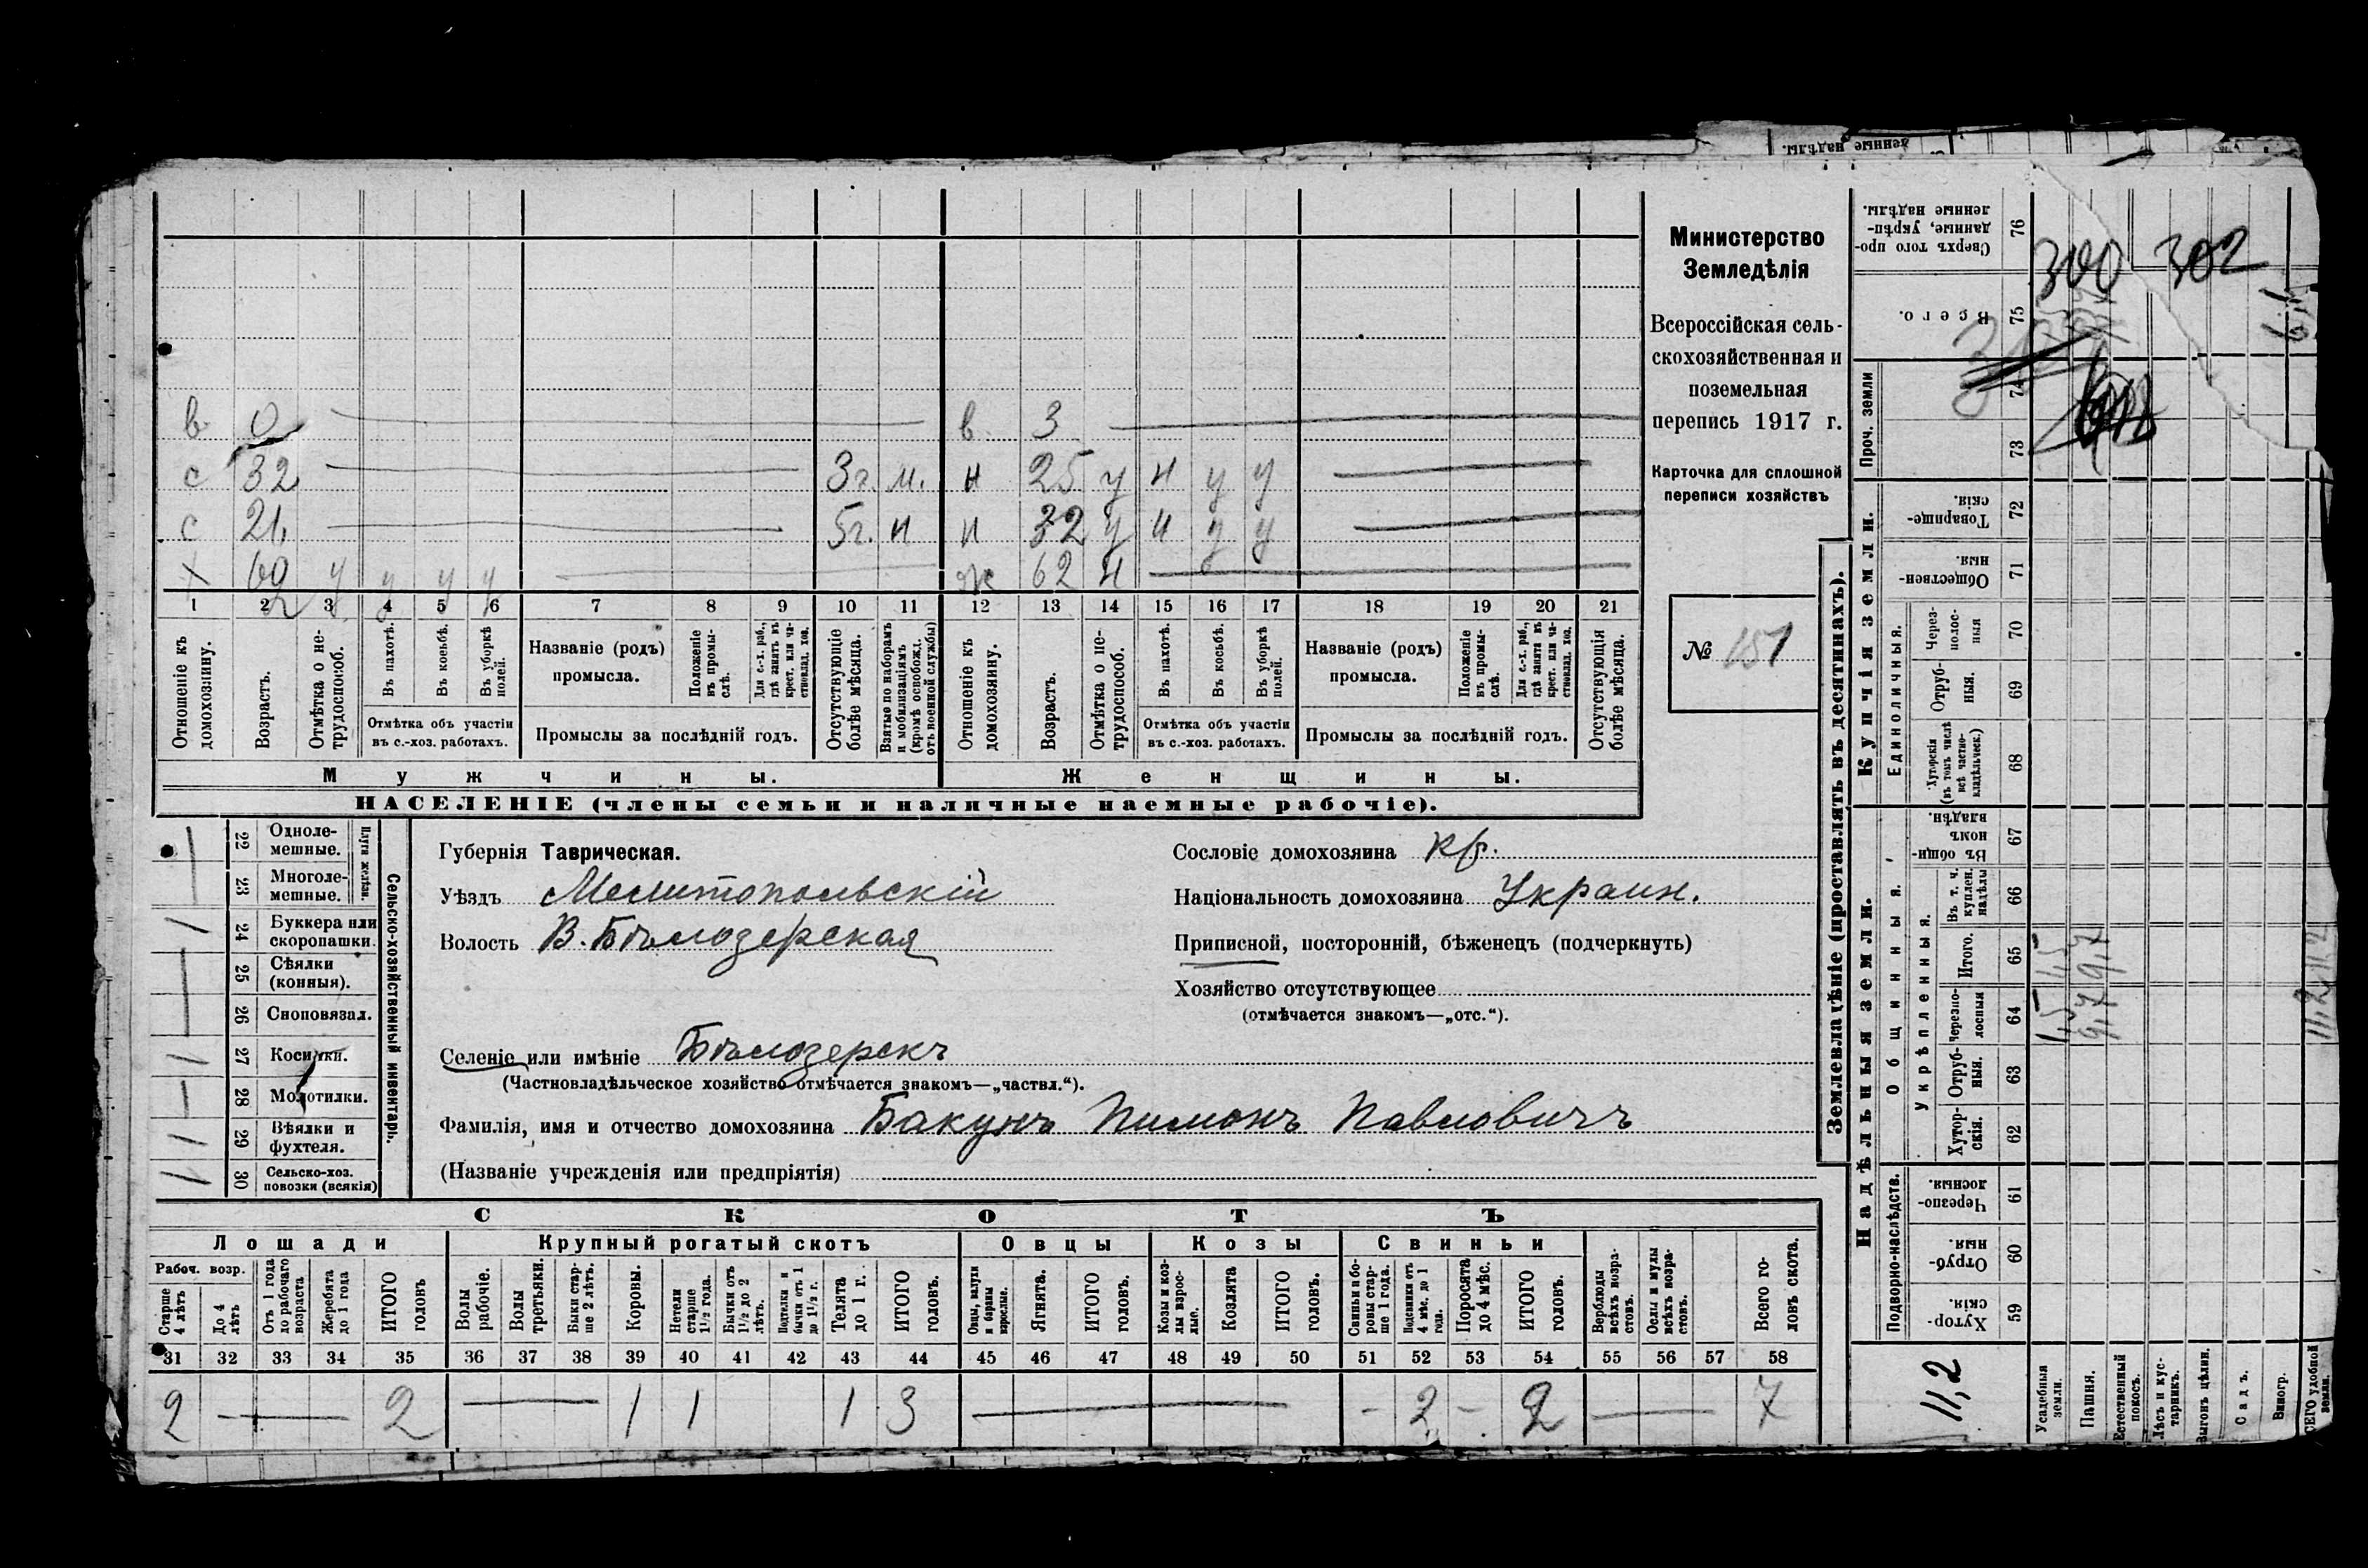 денные надѣлы.
в 0 в. 3
с 32 3г. м. н 25 у н у у
с 21 5г. н н 32 у н у у
х 60 у у у у ж 62 н
1 2 3 4 5 6 7 8 9 10 11 12 13 14 15 16 17 18 19 20 21
Отношеніе къ домохозяину.
Возрастъ.
Отмѣтка о не-трудоспособ.
Въ пахотѣ.
Въ косьбѣ.
Въ уборкѣ полей.
Отмѣтка объ участіи
въ с.-хоз. работахъ.
Названіе (родъ)
промысла.
Положеніе въ промы-слѣ.
Для с.-х. раб., гдѣ занятъ въ крест. или ча-стновлад. хоз.
Промыслы за послѣдній годъ.
Отсутствующіе болѣе мѣсяца.
Взятые по наборамъ и мобилизаціямъ (кромѣ освобожд. отъ военной службы)
Отношеніе къ домохозяину.
Возрастъ.
Отмѣтка о не-трудоспособ.
Въ пахотѣ.
Въ косьбѣ.
Въ уборкѣ полей.
Отмѣтка объ участіи
въ с.-хоз. работахъ.
Названіе (родъ)
промысла.
Положеніе въ промы-слѣ.
Для с.-х. раб., гдѣ занята въ крест. или ча-стновлад. хоз.
Промыслы за послѣдній годъ.
Отсутствующія болѣе мѣсяца.
Мужчины. Женщины.
НАСЕЛЕНІЕ (члены семьи и наличные наемные рабочіе).
Министерство
Земледѣлія
Всероссійская сель-
скохозяйственная и
поземельная
перепись 1917 г.
Карточка для сплошной
переписи хозяйствъ
№ 151
22 Одноле-мешные.
23 Многоле-мешные.
Плуги желѣзн.
24 Буккера или скоропашки.
25 Сѣялки (конныя).
26 Сноповязал.
27 Косилки.
28 Молотилки.
29 Вѣялки и фухтеля.
30 Сельско-хоз. повозки (всякія)
Сельско-хозяйственный инвентарь.
Губернія Таврическая.
Уѣздъ Мелитопольскій
Волость В. Бѣлозерская
Селеніе или имѣніе Бѣлозерскъ
(Частновладѣльческое хозяйство отмѣчается знакомъ—„частвл.“).
Фамилія, имя и отчество домохозяина Бакунъ Пимонъ Павловичъ
(Названіе учрежденія или предпріятія)
Сословіе домохозяина кр.
Національность домохозяина Украин.
Приписной, посторонній, бѣженецъ (подчеркнуть)
Хозяйство отсутствующее
(отмѣчается знакомъ—„отс.“).
СКОТЪ
Лошади Крупный рогатый скотъ Овцы Козы Свиньи
Рабоч. возр.
Старше 4 лѣтъ
До 4 лѣтъ
Отъ 1 года до рабочаго возраста
Жеребята до 1 года
ИТОГО головъ
Волы рабочіе.
Волы третьяки.
Быки стар-ше 2 лѣтъ.
Коровы.
Нетели старше 1½ года.
Бычки отъ 1½ до 2 лѣтъ.
Подтелки и бычки отъ 1 до 1½ г.
Телята до 1 г.
ИТОГО головъ.
Овцы, валухи и бараны взрослые.
Ягнята.
ИТОГО головъ.
Козы и коз-лы взрос-лые.
Козлята
ИТОГО головъ.
Свиньи и бо-ровы стар-ше 1 года.
Подсвинки отъ 4 мѣс. до 1 года.
Поросята до 4 мѣс.
ИТОГО головъ.
Верблюды всѣхъ возра-стовъ.
Ослы и мулы всѣхъ возра-стовъ.
Всего го-ловъ скота.
31 32 33 34 35 36 37 38 39 40 41 42 43 44 45 46 47 48 49 50 51 52 53 54 55 56 57 58
2 — 2 — 1 1 1 3 — - 2 - 2 — 7
Землевладѣніе (проставлять въ десятинахъ).
Надѣльныя земли. Купчія земли.
Подворно-наслѣдств.
Общинныя.
Укрѣпленныя.
Единоличныя.
Проч. земли
Хутор-скія. 59
Отруб-ныя. 60
Черезпо-лосныя. 61
Хутор-скія. 62
Отруб-ныя. 63
Черезпо-лосныя 64
Итого. 65
Въ т. ч. куплен. надѣлы 66
Въ общи-номъ владѣн. 67
Хуторскія (въ томъ числѣ всѣ частно-владѣльческ.) 68
Отруб-ныя. 69
Через-полос-ныя 70
Обществен-ныя 71
Товарище-скія. 72
73
74
Всего. 75
Сверхъ того про-данные, укрѣп-ленные надѣлы. 76
300 302
11,2
Усадебныя земли. 1,5 1,5
Пашня. 9,7 9,7
Естественный покосъ.
Лѣсъ и кус-тарникъ.
Выгонъ цѣлин.
Садъ.
Виногр.
ВСЕГО удобной земли. 11,2 11,2